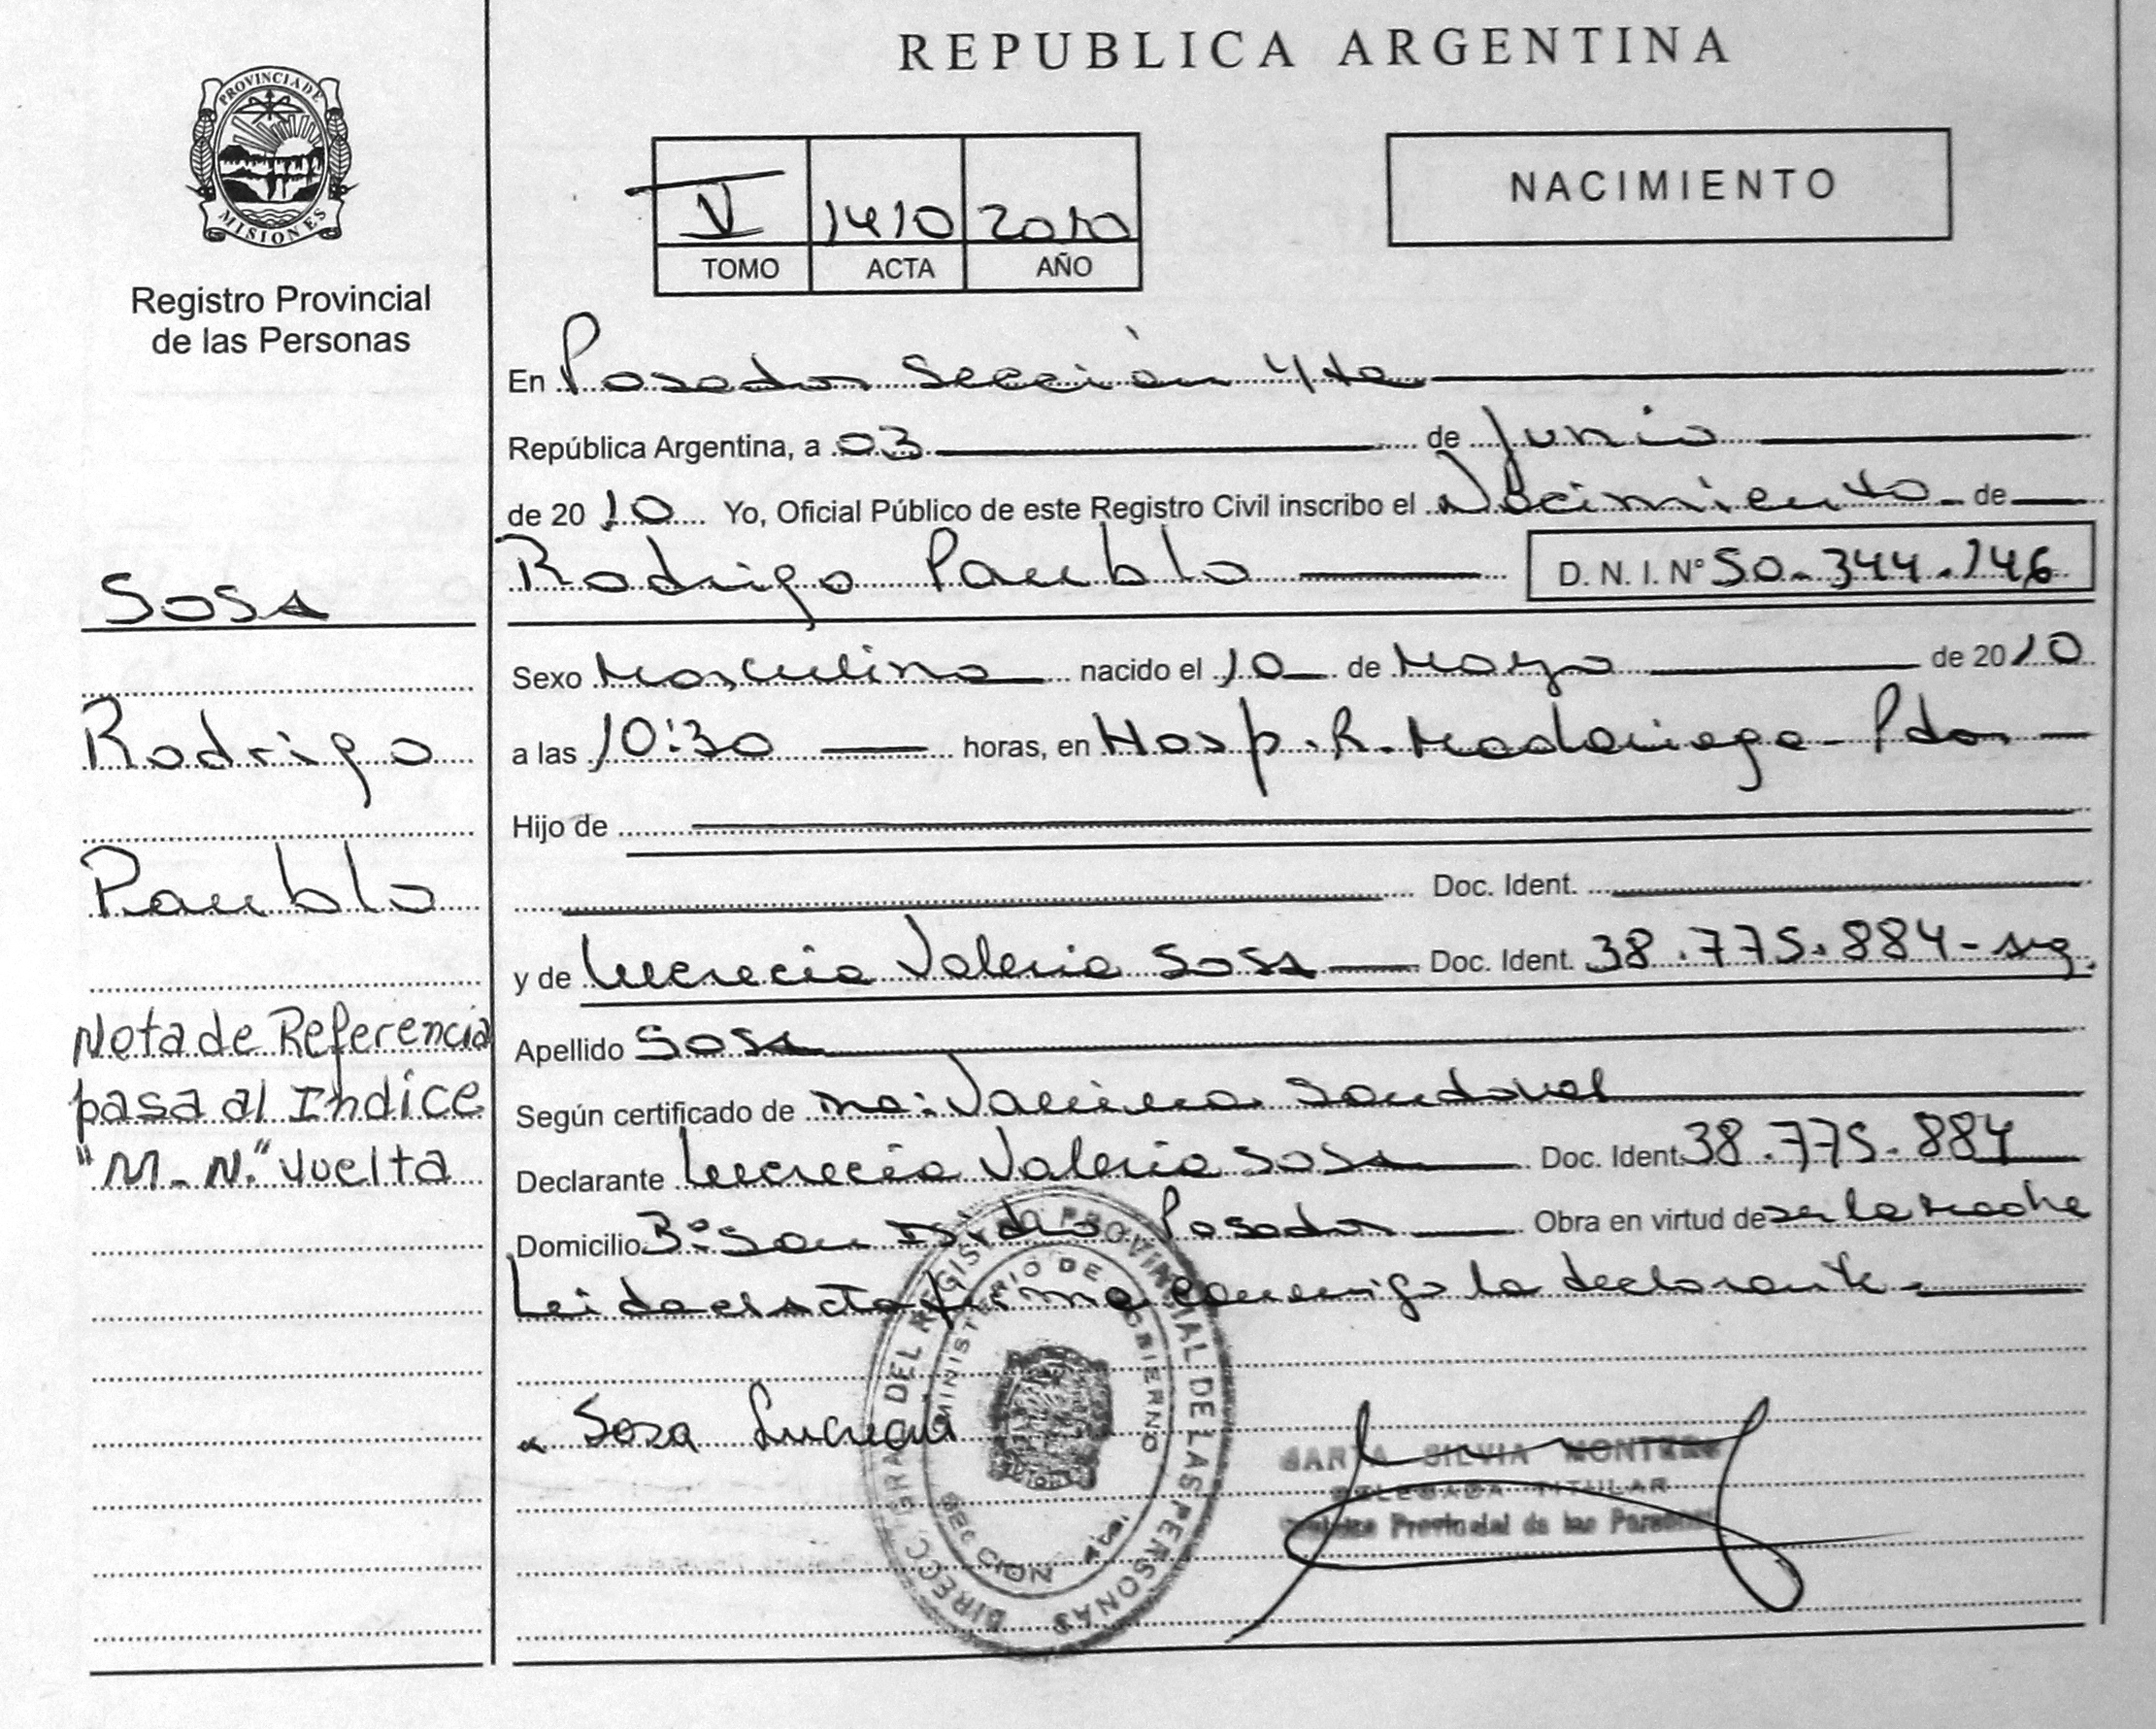 REPUBLICA ARGENTINA
PROVINCIA DE
MISIONES
Registro Provincial
de las Personas
V 1410 2010
TOMO ACTA AÑO
NACIMIENTO
En Posadas Sección 4ta
República Argentina, a 03 de Junio
de 2010 Yo, Oficial Público de este Registro Civil inscribo el Nacimiento de
Rodrigo Paublo D. N. I. N° 50.344.146
Sosa
Rodrigo
Paublo
Nota de Referencia
pasa al Indice
"M-N." vuelta
Sexo Masculino nacido el 10 de Mayo de 2010
a las 10:30 horas, en Hosp. R. Madariaga - Pdas
Hijo de
Doc. Ident.
y de Lucrecia Valeria Sosa Doc. Ident. 38.775.884 - arg.
Apellido Sosa
Según certificado de Sandoval
Declarante Lucrecia Valeria Sosa Doc. Ident. 38.775.884
Domicilio B° San Isidro Posadas Obra en virtud de ser la madre
Leida el acta firma conmigo la declarante.
Sosa Lucrecia
DIRECC. GRAL. DEL REGISTRO PROVINCIAL DE LAS PERSONAS
MINISTERIO DE GOBIERNO
SECCION 4ta.
SILVIA MONTERO
DELEGADA TITULAR
Provincial de las Personas